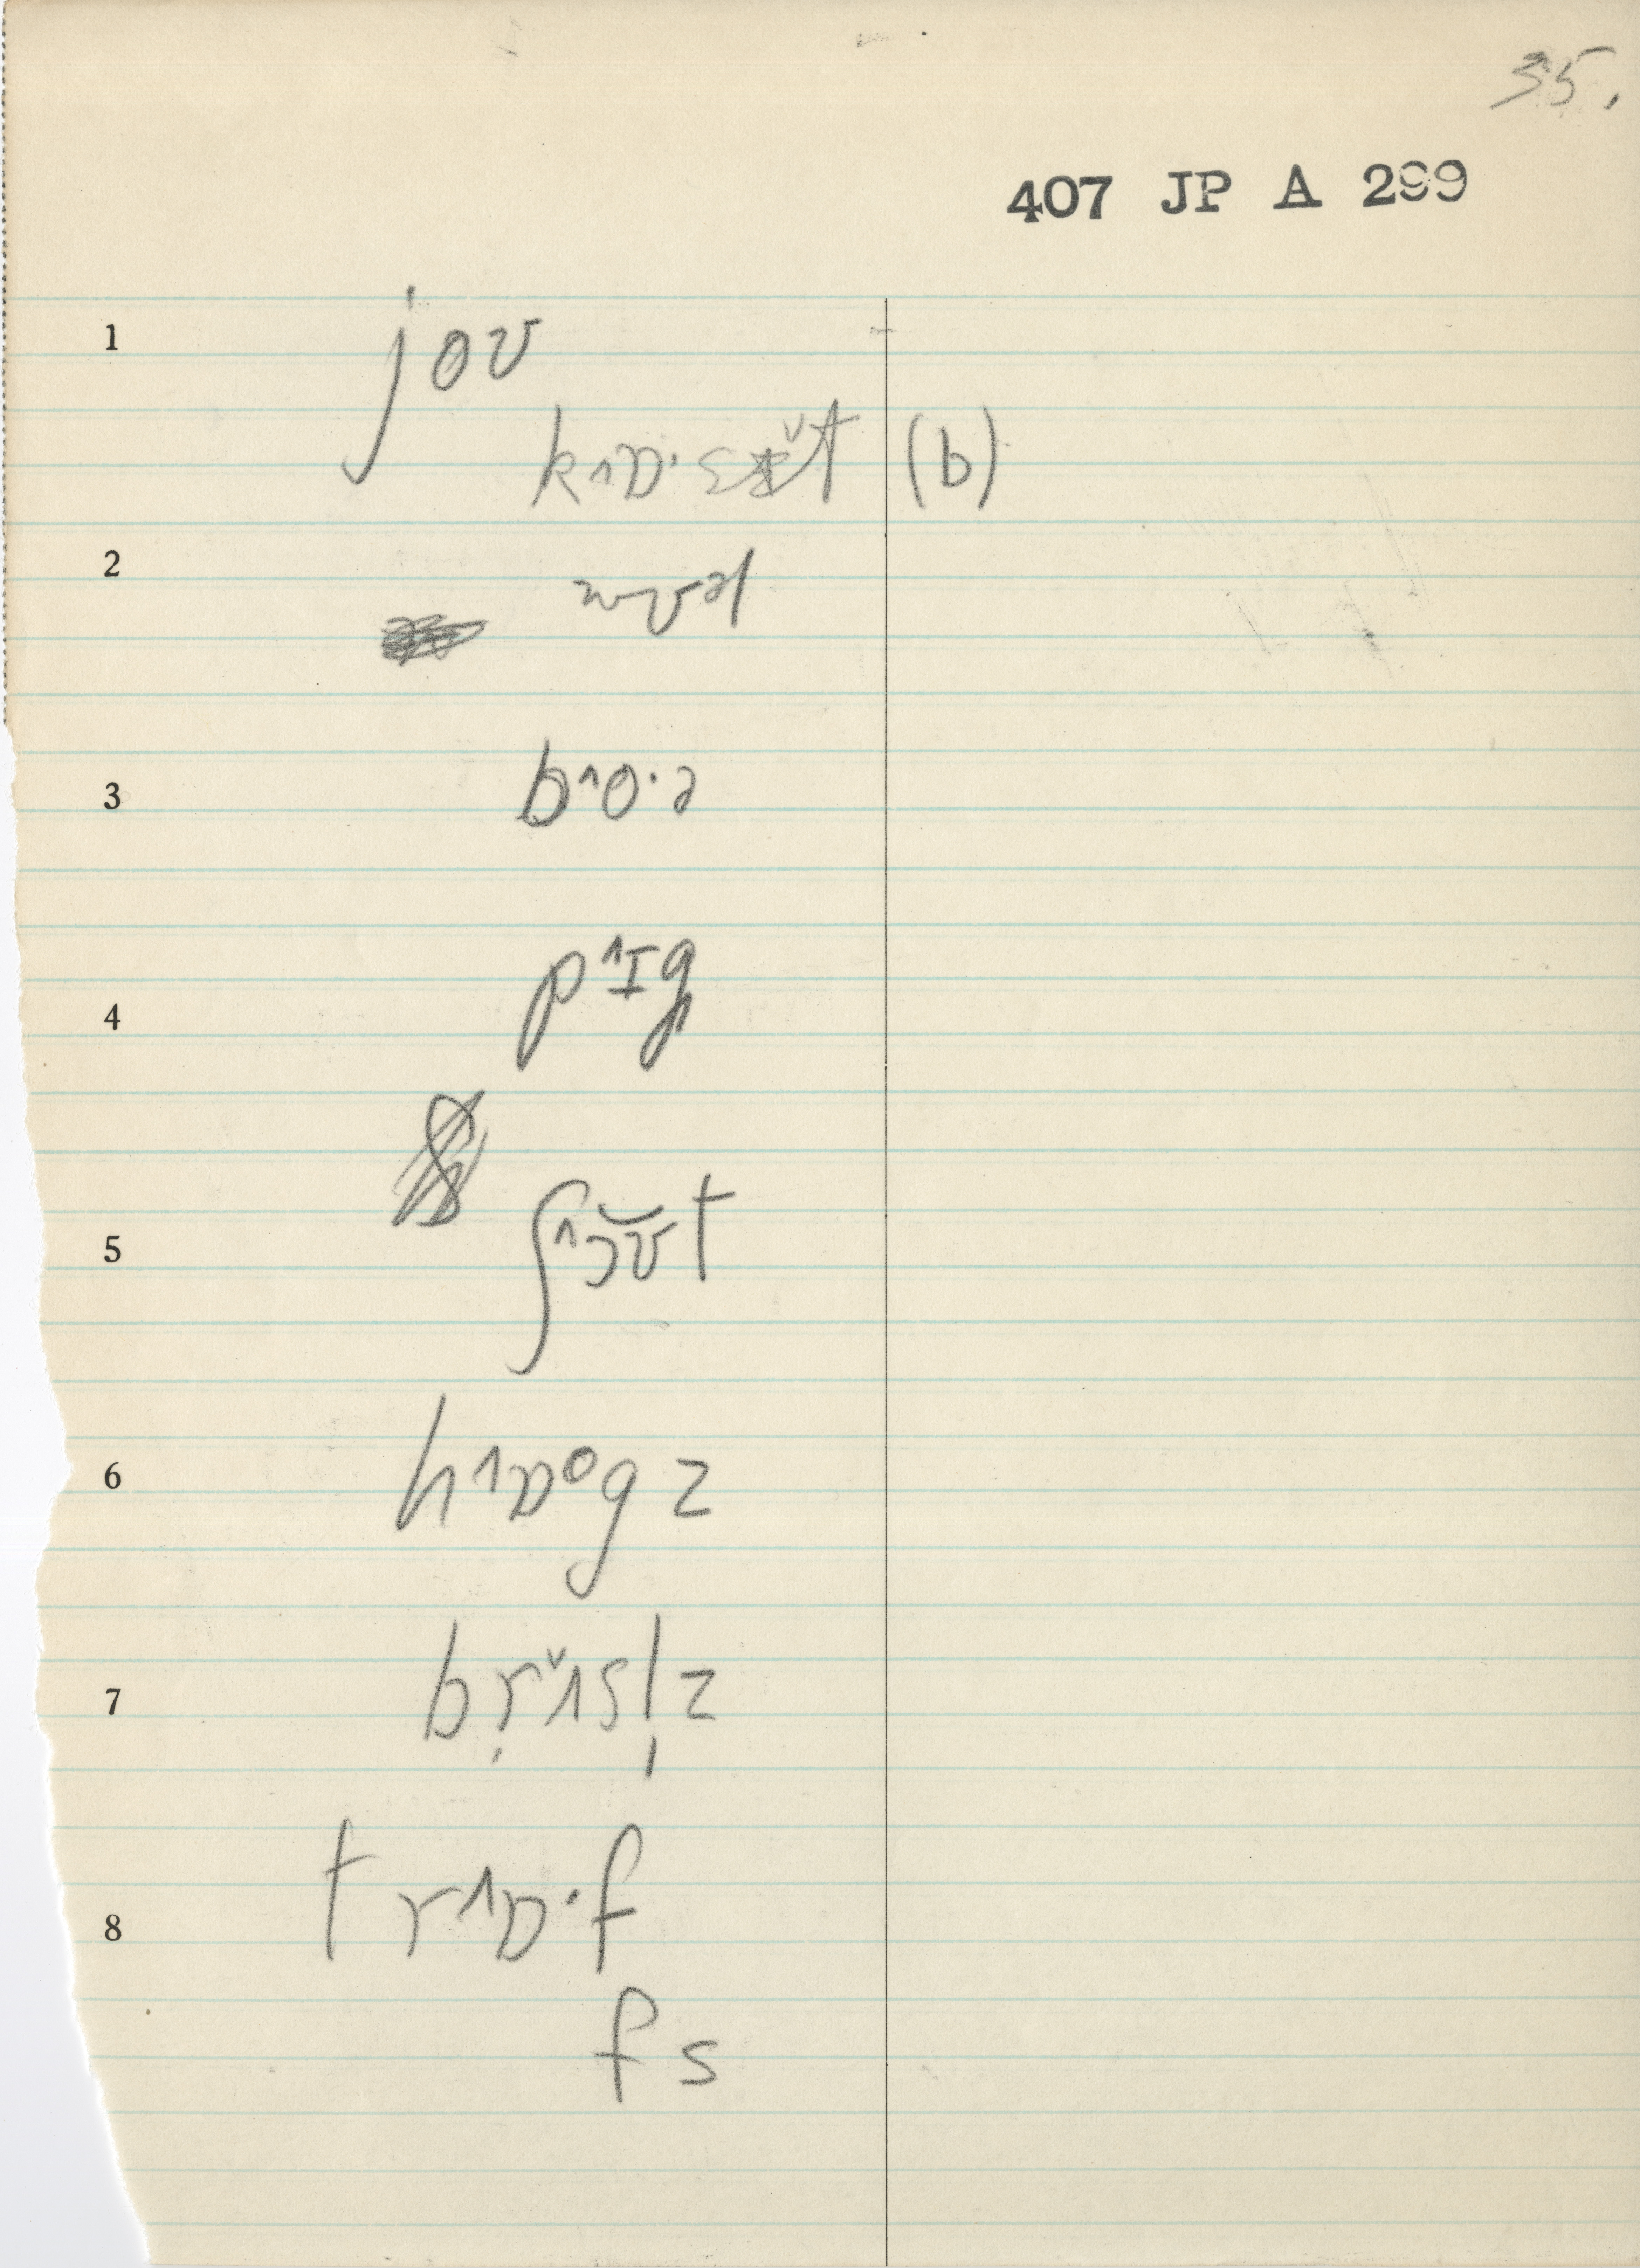 35.
407 JP A 299
1 joʊ
k˄ɒ·sɛ̌t (b)
2
3 b˄o·ə
4 p˄ɪg
5 ʃ˄ɔʊ̆t
6 h˄ɒᵒgz
7 bṛ˅ʌsl̩z
8 tr˄ɒ·f
fs